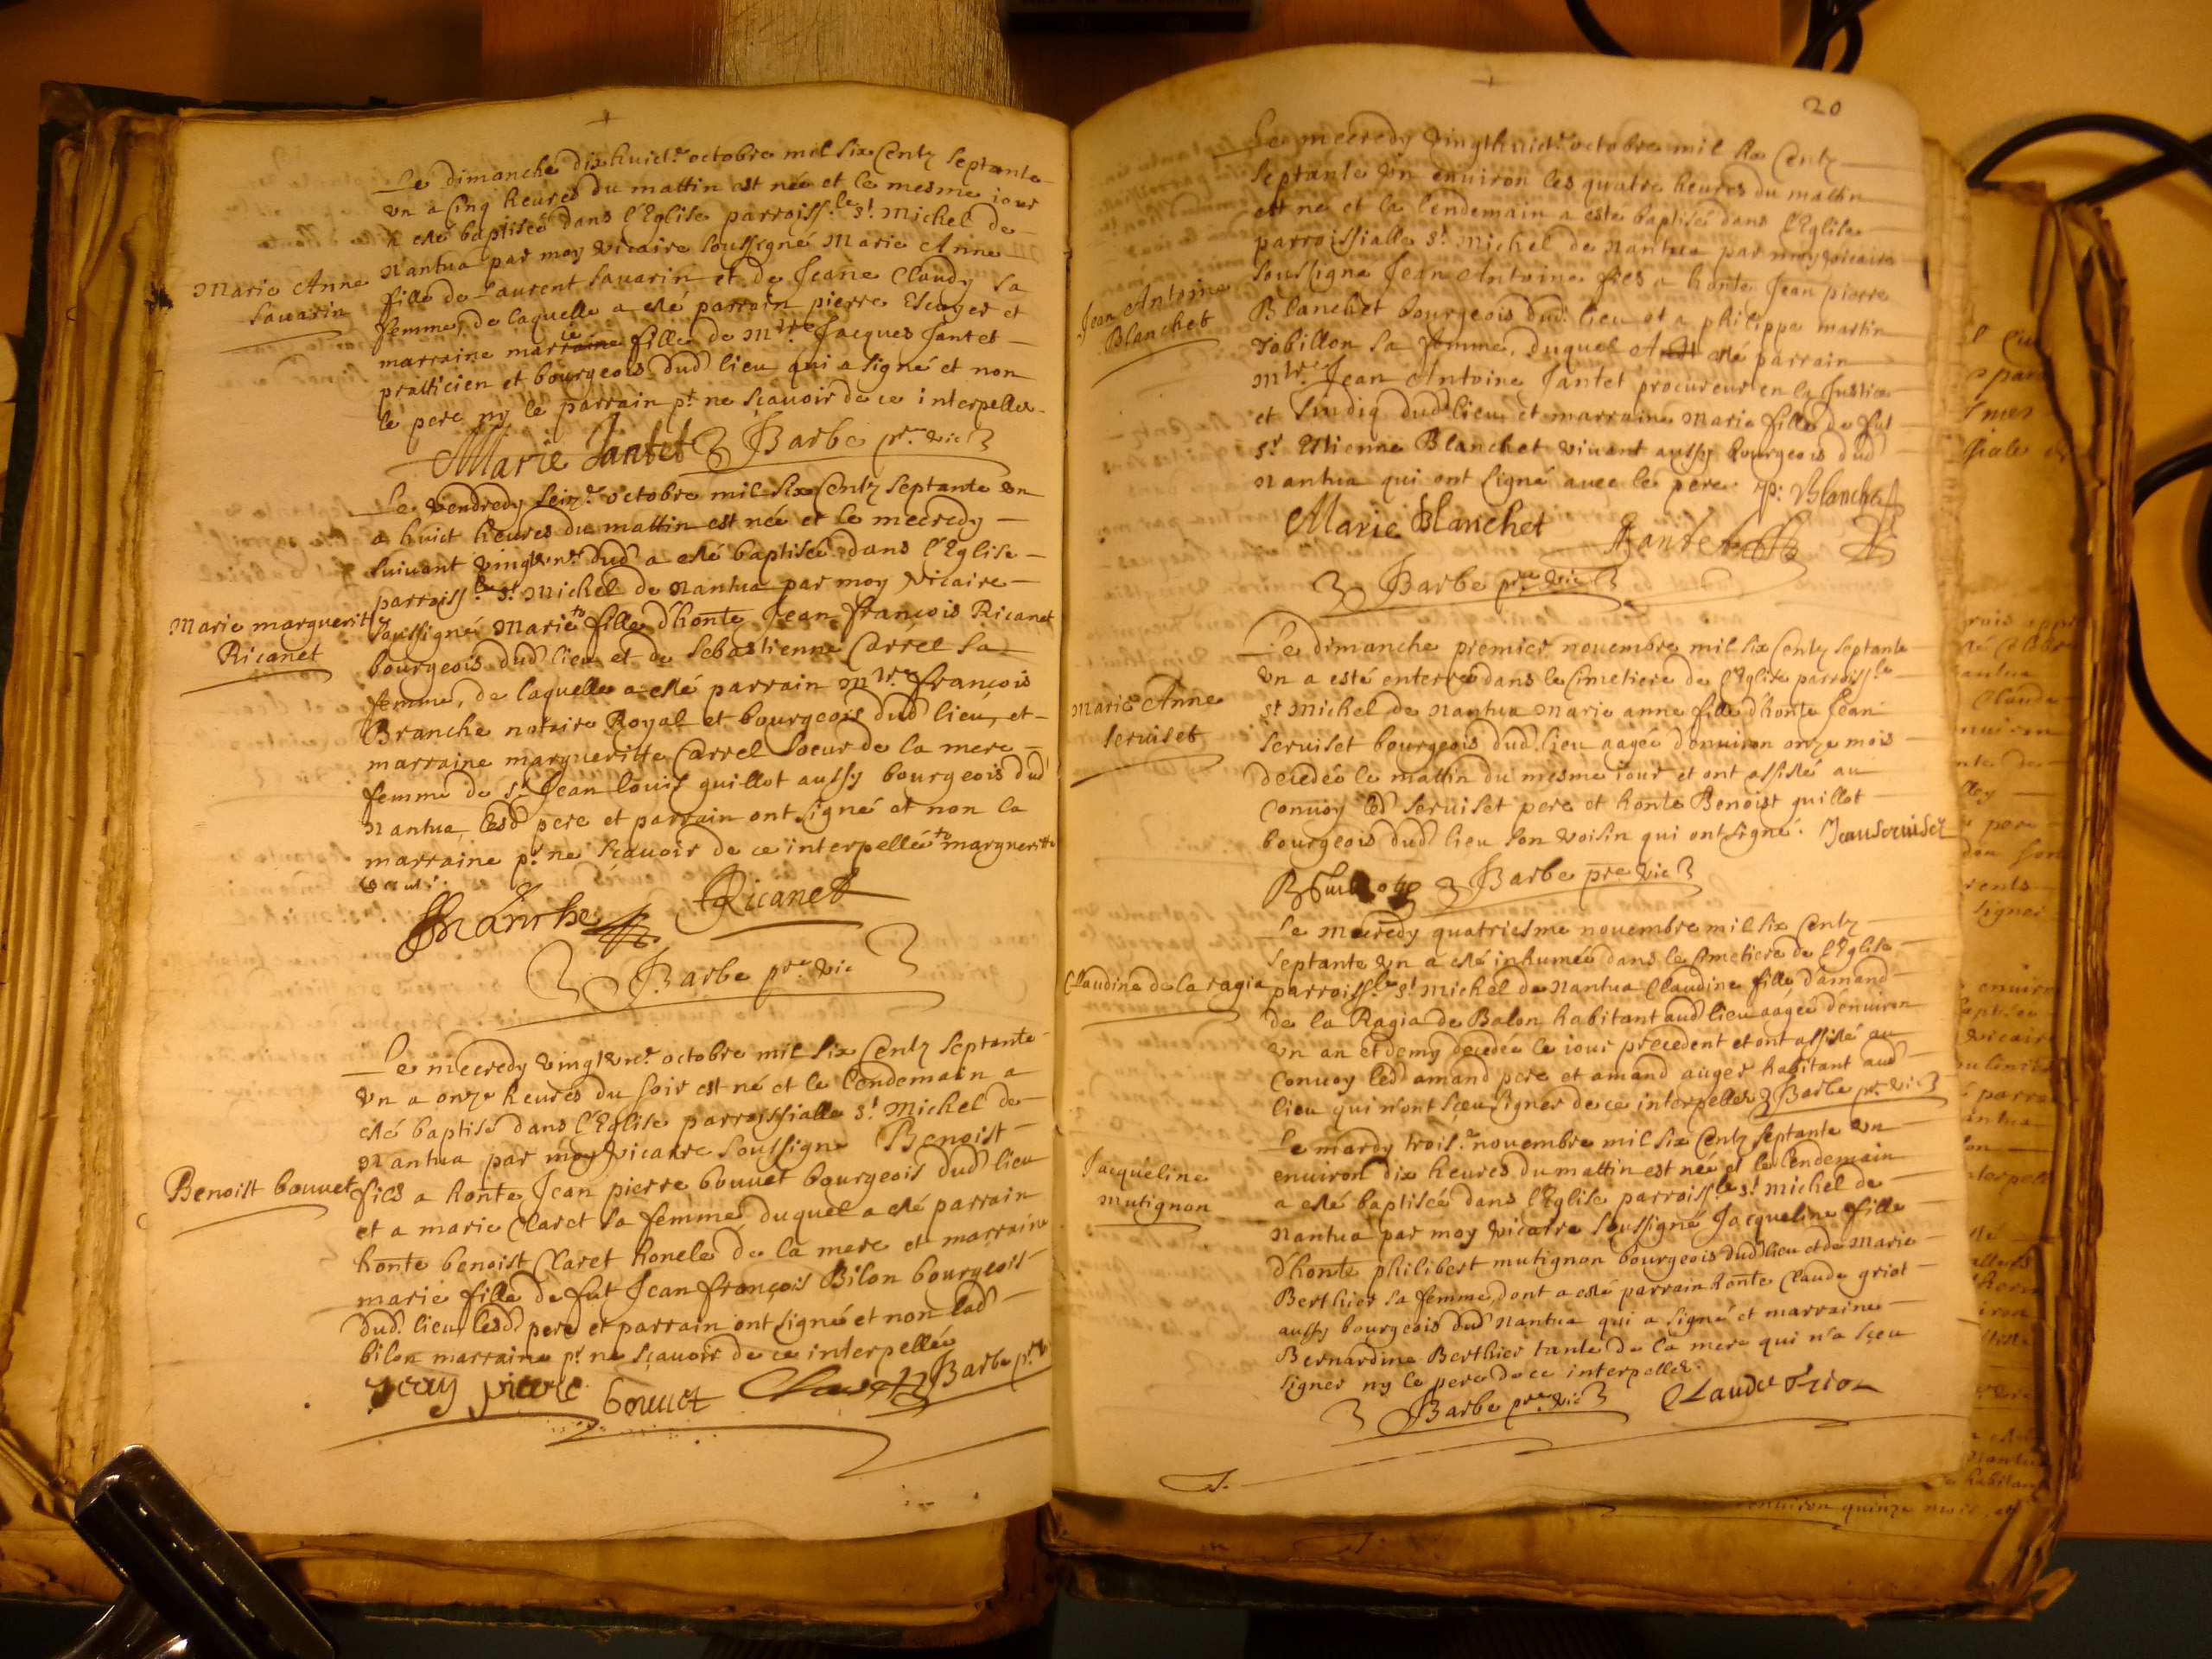 Le dimanche dixhuict.e octobre mil six centz septante
vn a cinq heures du mattin est née et le mesme iour
a esté baptisée dans l'Eglise parroiss.le s.t Michel de
Nantua par moy vicaire soussigné Marie Anne
Marie Anne
Sauarin
fille de Laurent Sauarin et de Jeane Claudy sa
femme, de laquelle a esté parrain pierre Escoyer et
marraine marie fille de M.tre Jacques Jantet
pratticien et bourgeois dud lieu qui a signé et non
le pere ny le parrain p.r ne sçauoir de ce interpellez
Marie Jantet Barbe p.re vic
Le Vendredy seiz.e octobre mil six centz septante vn
a huict heures du mattin est née et le mecredy
suiuant vingtvn.e dud a esté baptisée dans l'Eglise
parroiss.le s.t Michel de Nantua par moy vicaire
Marie marguerite
Ricanet
soussigné Marie fille d'honte Jean françois Ricanet
bourgeois dud lieu et de Sebastienne Carrel sa
femme, de laquelle a esté parrain M.tre françois
Branche notaire Royal et bourgeois dud lieu, et
marraine margueritte Carrel soeur de la mere
femme de s.r Jean louis guillot aussy bourgeois dud
Nantua, lesd pere et parrain ont signé et non la
marraine p.r ne sçauoir de ce interpellée margueritte
Branche Ricanet
Barbe p.re vic
Le mecredy vingtvn.e octobre mil six centz septante
vn a onze heures du soir est né et le lendemain a
esté baptisé dans l'Eglise parroissialle s.t Michel de
Nantua par moy vicaire soussigné Benoist
Benoist bouuet
fils a honte Jean pierre bouuet bourgeois dud lieu
et a marie Claret sa femme, duquel a esté parrain
honte benoist Claret honcle de la mere et marraine
marie fille de fut Jean françois Bilon bourgeois
dud. lieu, lesd pere et parrain ont signé et non lad
bilon marraine p.r ne sçauoir de ce interpellée
Jean pierre bouuet Claret Barbe p.re v
20
Le mecredy vingthuict.e octobre mil six centz
septante vn enuiron les quatre heures du mattin
est né et le lendemain a esté baptisé dans l'Eglise
parroissialle s.t Michel de Nantua par moy vicaire
Jean Antoine
Blanchet
soussigné Jean Antoine fils a honte Jean pierre
Blanchet bourgeois dud. lieu et a philippe martin
robillon sa femme, duquel a esté parrain
M.tre Jean Antoine Jantet procureur en la Justice
et sindiq dud lieu, et marraine Marie fille de fut
s.r Estienne Blanchet viuant aussy bourgeois dud
Nantua qui ont signé auec le pere. Jp: Blanchet
Marie Blanchet Jantet
Barbe p.re vic
Le dimanche premier nouembre mil six centz septante
vn a esté enterrée dans le cimetiere de l'Eglise parroiss.le
Marie Anne
Seruiset
s.t Michel de Nantua Marie anne fille d'honte Jean
Seruiset bourgeois dud. lieu aagée denuiron onze mois
decedée le mattin du mesme iour et ont assisté au
conuoy led Seruiset pere et honte Benoist guillot
bourgeois dud lieu son voisin qui ont signé. Jean Seruiset
Barbe pre vic
Le mecredy quatriesme nouembre mil six centz
septante vn a esté inhumée dans le cimetiere de l'Eglise
Claudine de la ragia
parroiss.le s.t Michel de Nantua Claudine fille d'amand
de la Ragia de Balon habitant aud lieu aagée denuiron
vn an et demy decedée le iour precedent et ont assisté au
conuoy led amand pere et amand auger habitant aud
lieu qui n'ont sçeu signer de ce interpellez Barbe p.re vic
Le mardy trois.e nouembre mil six centz septante vn
enuiron dix heures du mattin est née et le lendemain
Jacqueline
mutignon
a esté baptisée dans l'Eglise parroiss.le s.t Michel de
Nantua par moy vicaire soussigné Jacqueline fille
d'honte philibert mutignon bourgeois dud lieu et de Marie
Berthier sa femme, dont a esté parrain honte Claude griot
aussy bourgeois dud Nantua qui a signé et marraine
Bernardine Berthier tante de la mere qui n'a sçeu
signer ny le pere de ce interpellez.
Barbe p.re vic Claude Griot
enuiron quinze mois et